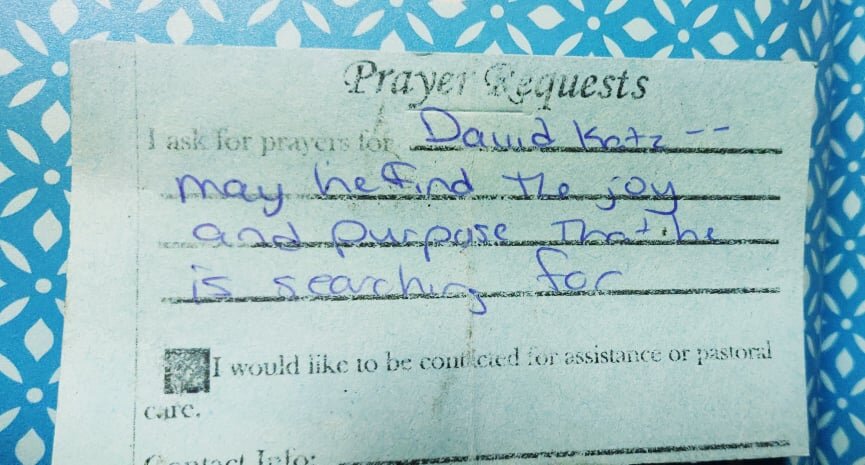 Prayer Requests
I ask for prayers for David Katz --
may he find the joy
and purpose that he
is searching for
I would like to be contacted for assistance or pastoral
care.
Contact Info: